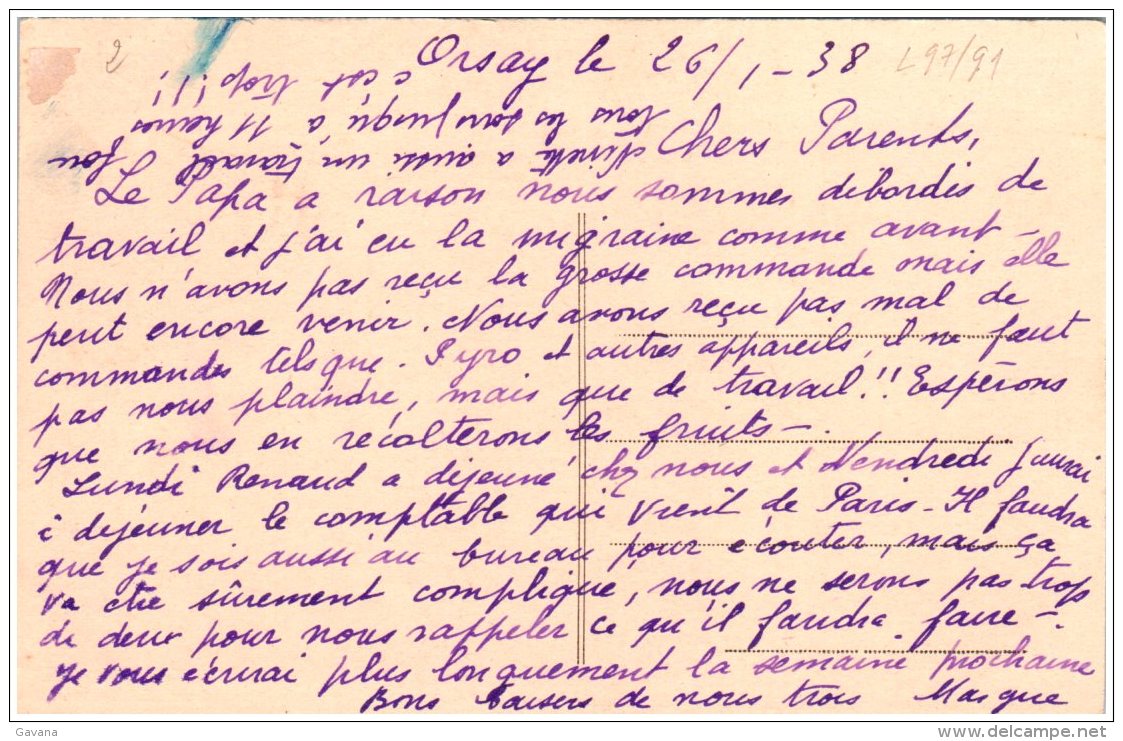 2
Orsay le 26/1-38
L97/91
Chers Parents,
Le Papa a raison nous sommes débordés de
travail et j'ai eu la migraine comme avant-
Nous n'avons pas reçu la grosse commande mais elle
peut encore venir. Nous avons reçu pas mal de
commandes tels que. Pyro et autres appareils, il ne faut
pas nous plaindre, mais que de travail!! Espérons
que nous en récolterons les fruits-.
Lundi Renaud a déjeuné chez nous et Vendredi j'aurai
à déjeuner le comptable qui vient de Paris- Il faudra
que je sois aussi au bureau pour écouter, mais ça
va être sûrement compliqué, nous ne serons pas trop
de deux pour nous rappeler ce qu'il faudra faire-.
Je vous écrirai plus longuement la semaine prochaine
Bons baisers de nous trois
a aussi un travail fou
tous les soirs jusqu'à 11 heures
c'est trop!!!
Gavana
www.delcampe.net